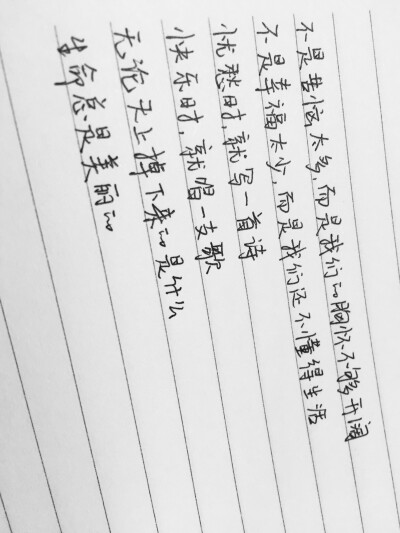 不是苦恼太多,而是我们的胸怀不够开阔
不是幸福太少,而是我们还不懂得生活
忧愁时,就写一首诗
快乐时,就唱一支歌
无论天上掉下来的是什么
生命总是美丽的